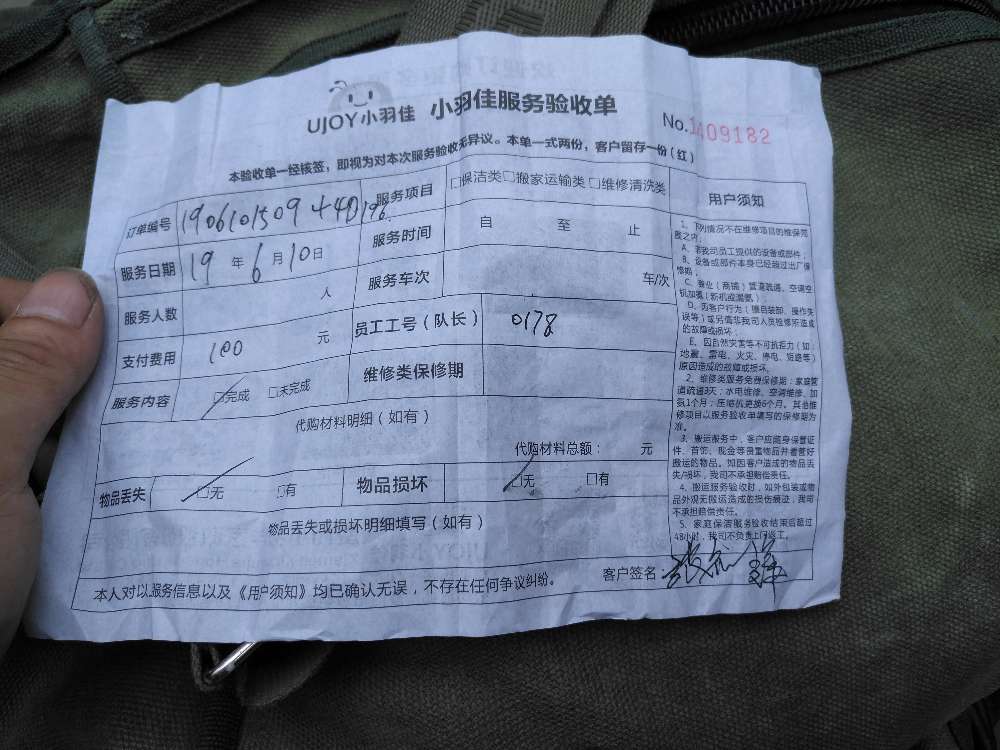 UJOY小羽佳 小羽佳服务验收单
No.1409182
本验收单一经核签，即视为对本次服务验收无异议。本单一式两份，客户留存一份（红）
订单编号 190610150944D196 服务项目 □保洁类□搬家运输类□维修清洗类
服务日期 19年6月10日 服务时间 自 至 止
服务人数 人 服务车次 车/次
支付费用 100 元 员工工号（队长） 0178
服务内容 □完成 □未完成 维修类保修期
代购材料明细（如有）
代购材料总额： 元
物品丢失 □无 □有 物品损坏 □无 □有
物品丢失或损坏明细填写（如有）
客户签名：
本人对以服务信息以及《用户须知》均已确认无误，不存在任何争议纠纷。
用户须知
1、下列情况不在维修项目的维保范
围之内：
A、非我司员工提供的设备或部件；
B、设备或部件本身已经超过出厂保
修期；
C、营业（商铺）管道疏通、空调空
机加氟（新机或漏氟）
D、因客户行为（擅自装卸、操作失
误等）或另情非我司人员维修所造成
的故障或损坏；
E、因自然灾害等不可抗拒力（如：
地震、雷电、火灾、停电、短路等）
原因造成的故障或损坏。
2、维修类服务免费保修期：家庭管
道疏通8天；水电维修、空调维修、加
氨1个月；压缩机更换6个月。其他维
修项目以服务验收单填写的保修期为
准。
3、搬运服务中，客户应随身保管证
件、首饰、现金等贵重物品并看管好
搬运的物品。如因客户造成的物品丢
失/损坏，我司不承担赔偿责任。
4、搬运服务验收时，如外包装或物
品外观无搬运造成的损伤痕迹，我司
不承担赔偿责任。
5、家庭保洁服务验收结束后超过
48小时，我司不负责上门返工。